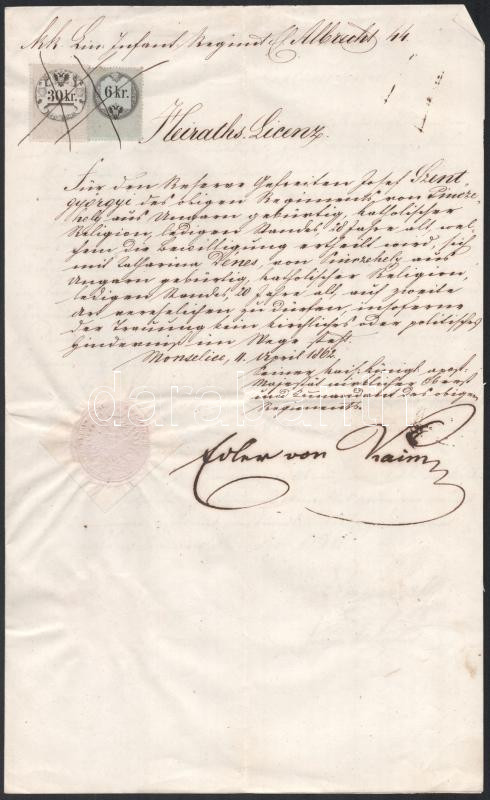 KK Lin. Infant. Regimt. E. Albrecht 44.
30 kr.
6 kr.
Heiraths-Licenz.
Für den Reserve Gefreiten Josef Szent
györgyi des obigen Regiments, von Pincze-
hely aus Ungarn gebürtig, katholischer
Religion, ledigen Standes, 28 Jahre alt, wel-
chem die Bewilligung ertheilt wird, sich
mit Catharina Dénes, von Pinczehely aus
Ungarn gebürtig, katholischer Religion,
ledigen Standes, 20 Jahre alt, auf zweite
Art verehelichen zu dürfen, insoferne
der Trauung kein kirchliches oder politisches
Hinderniß im Wege steht.
Monselice, 11. April 1862.
Seiner kais. königl. apost.
Majestät wirklicher Oberst
und Comandant des obigen
Regiments.
Edler von
darabanth